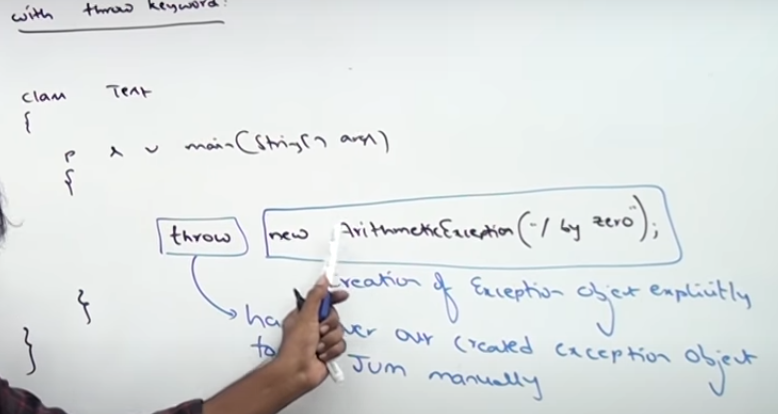 with throw keyword:
class Test
{
p s v main(String[] args)
{
throw new ArithmeticException("/ by zero");
creation of Exception object explicitly
}
over our created exception object
} to JVM manually